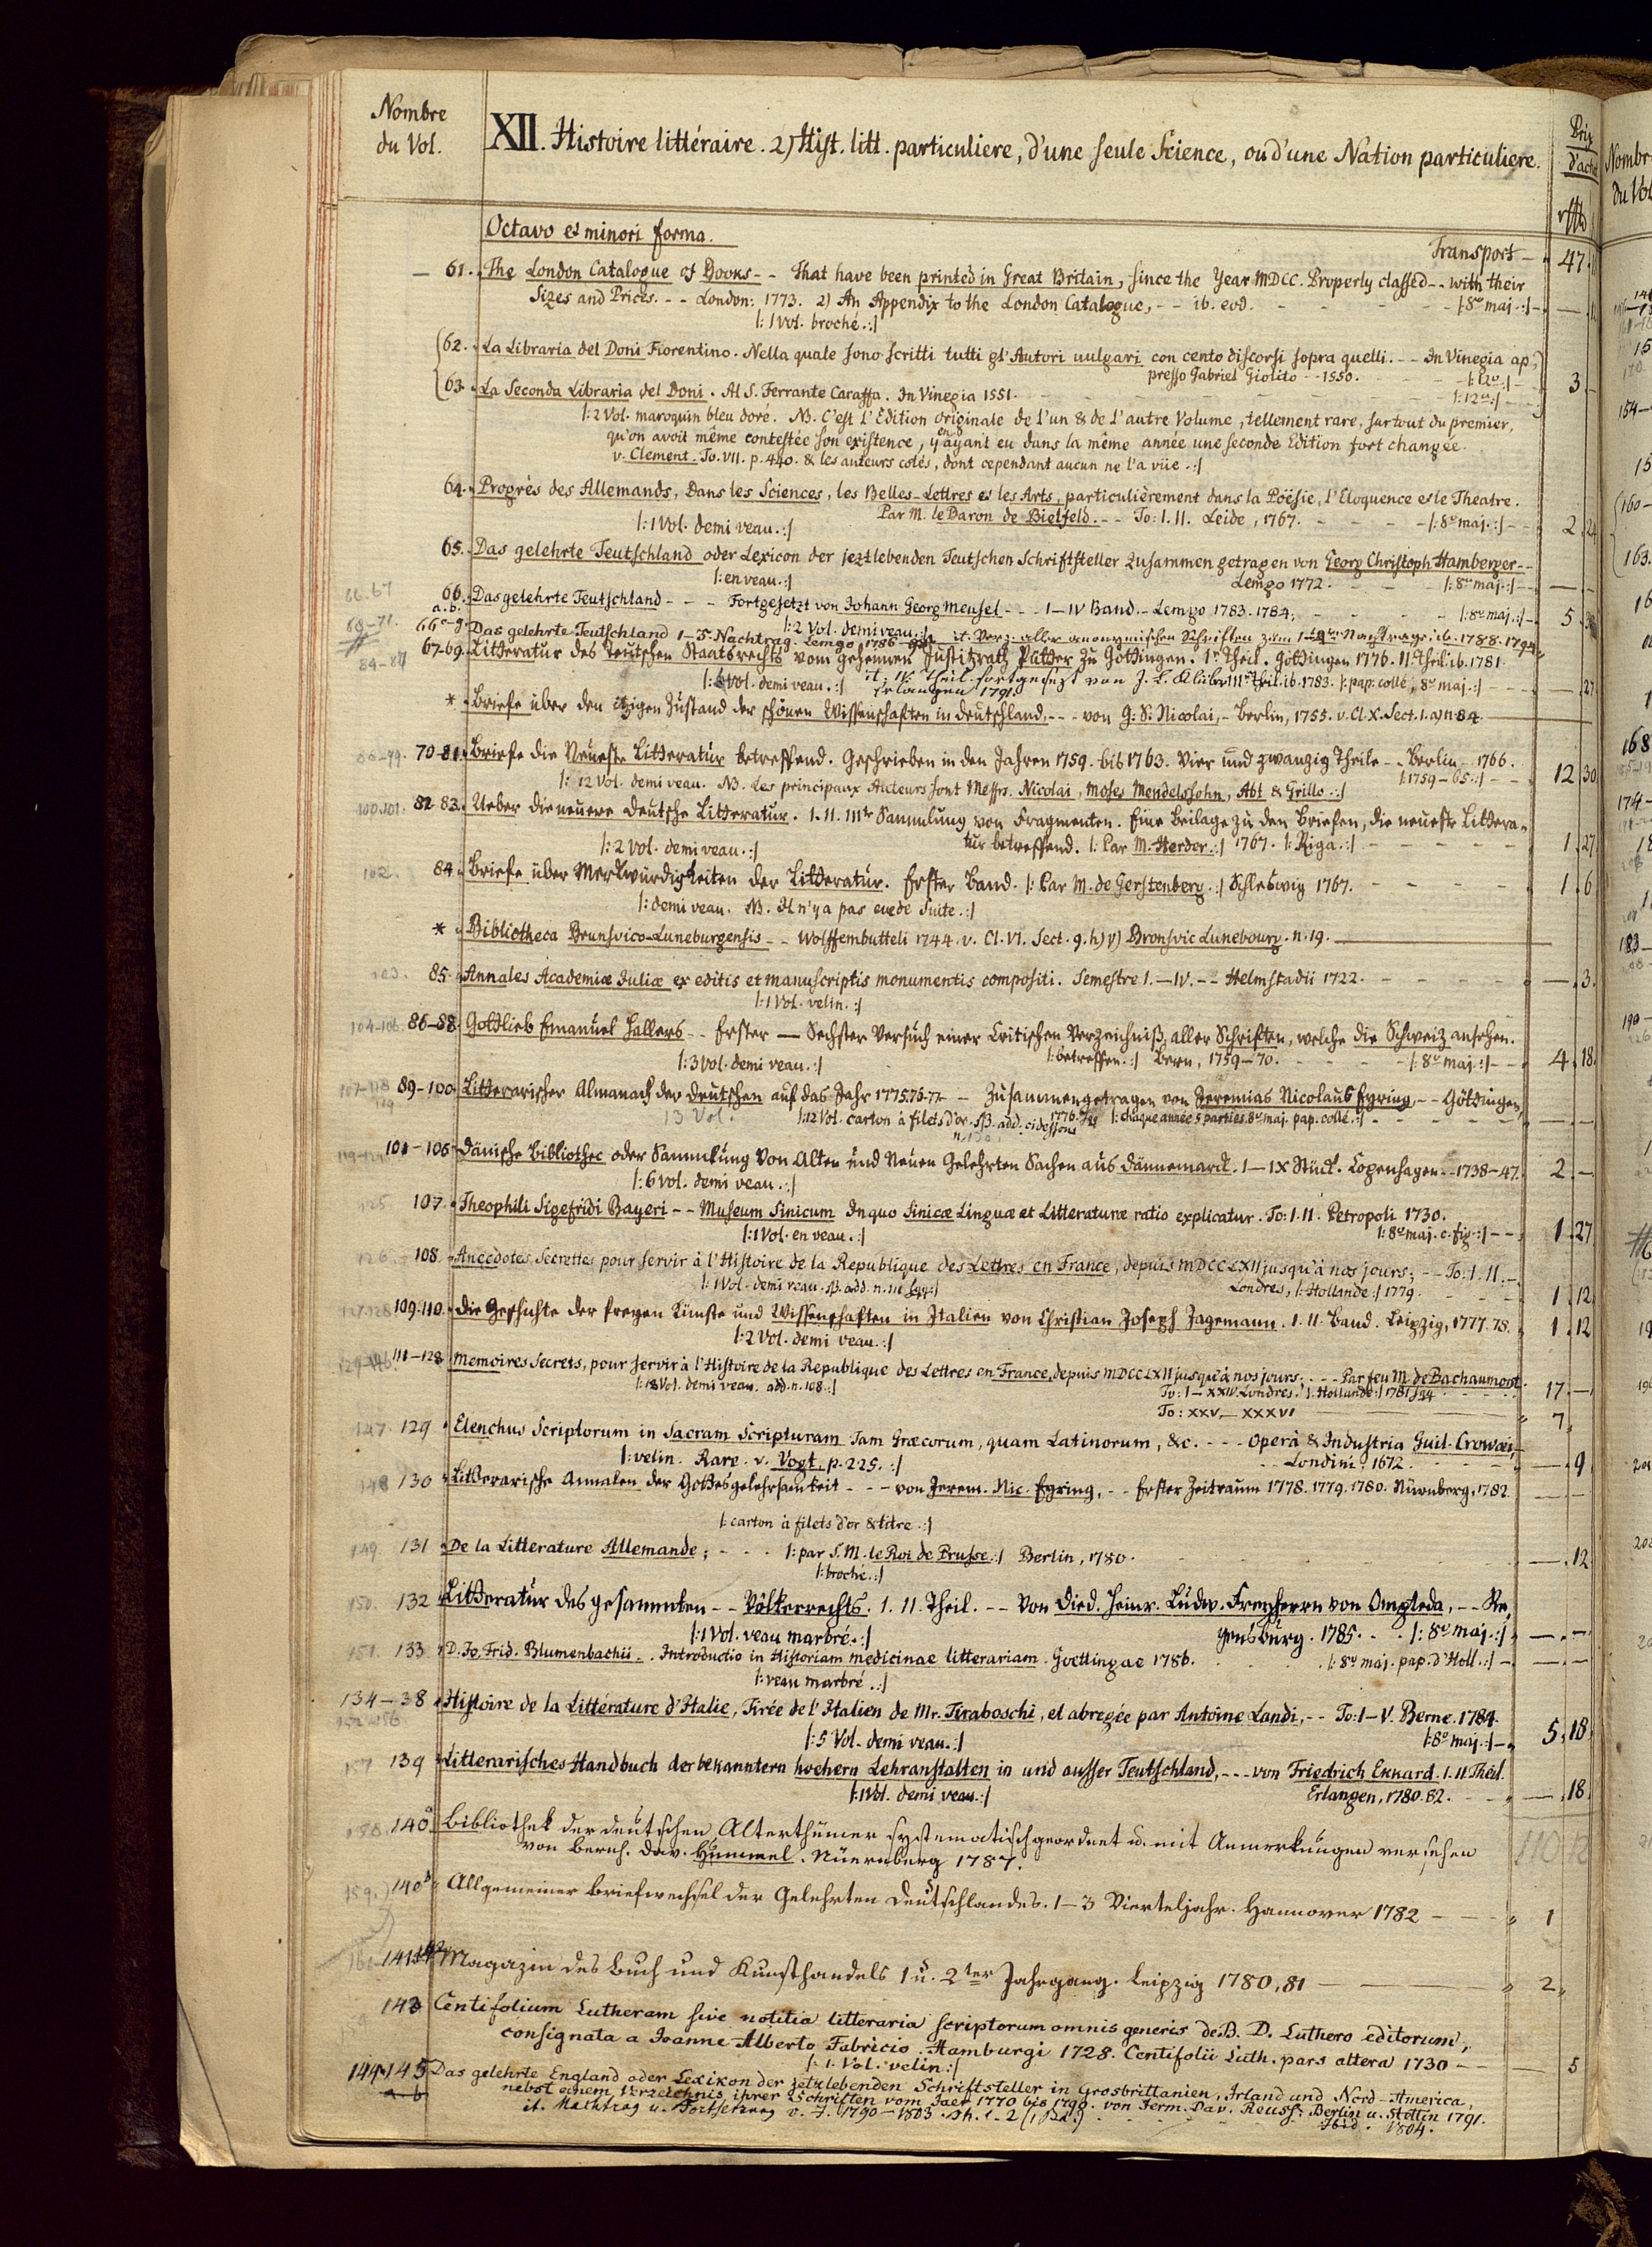 Nombre
du Vol.
XII. Histoire littéraire. 2) Hist. litt. particuliere, d'une seule Science, ou d'une Nation particuliere.
Prix
Octavo et minori forma.
Transport — 47
61. The London Catalogue of Books - - That have been printed in Great Britain, since the Year MDCC. Properly classed - - with their
Sizes and Prices. - - London: 1773. 2) An Appendix to the London Catalogue, - - ib. eod. |: 8vo maj. :|
|: 1 Vol. broché. :|
62. La Libraria del Doni Fiorentino. Nella quale sono scritti tutti gl'Autori vulgari con cento discorsi sopra quelli. - - In Vinegia ap-
presso Gabriel Giolito - - 1550. |: 12o. :| 3
63. La Seconda Libraria del Doni. Al S. Ferrante Caraffa. In Vinegia 1551. |: 12o. :|
|: 2 Vol. maroquin bleu doré. NB. C'est l'Edition originale de l'un & de l'autre Volume, tellement rare, surtout du premier,
qu'on avoit même contestée son existence, y en ayant eu dans la même année une seconde Edition fort changée.
v. Clement. To. VII. p. 440. & les auteurs cotés, dont cependant aucun ne l'a vüe. :|
64. Progrès des Allemands, Dans les Sciences, les Belles-Lettres et les Arts, particulièrement dans la Poësie, l'Eloquence et le Theatre.
Par M. le Baron de Bielfeld. - - To: I. II. Leide, 1767. |: 8o maj. :| 2
|: 1 Vol. demi veau. :|
65. Das gelehrte Teutschland oder Lexicon der jeztlebenden Teutschen Schriftsteller zusammen getragen von Georg Christoph Hamberger - -
|: en veau. :| Lemgo 1772. |: 8vo maj. :|
66. 67
66. a. b. Das gelehrte Teutschland - - - Fortgesetzt von Johann Georg Meusel - - - I—IV Band. - Lemgo 1783. 1784. |: 8vo maj. :| 5
|: 2 Vol. demi veau. :|
66 c-g. Das gelehrte Teutschland 1-5. Nachtrag. Lemgo 1786 it. Verz. aller anonymischen Schriften zum Nachtrage. ib. 1788. 1794
67-69. Litteratur des Teutschen Staatsrechts vom Geheimen Justitzrath Pütter zu Göttingen. Ir Theil. Göttingen 1776. II. Theil. ib. 1781.
it. IV. Theil. fortgesezt von J. L. Klüber III. Theil. ib. 1783. |: pap. collé, 8o maj. :| 27
|: Vol. demi veau. :| Erlangen 1791
* Briefe über den itzigen Zustand der schönen Wissenschaften in Deutschland, - - - von G. S. Nicolai, - Berlin, 1755. v. Cl. X. Sect. 1. a) n. 84.
70-81. Briefe die Neueste Litteratur betreffend. Geschrieben in den Jahren 1759. bis 1763. Vier und zwanzig Theile - - Berlin - 1766.
|: 12 Vol. demi veau. NB. Les principaux Auteurs sont Messrs. Nicolai, Moses Mendelssohn, Abt & Grillo. :| |: 1759-65. :| 12 30
100.101. 82-83. Ueber die neuere deutsche Litteratur. I. II. IIIte Sammlung von Fragmenten. Eine Beilage zu den Briefen, die neueste Littera-
tur betreffend. |: Par M. Herder. :| 1767. |: Riga. :| 1 27
|: 2 Vol. demi veau. :|
102. 84. Briefe über Merkwürdigkeiten der Litteratur. Erster Band. |: Par M. de Gerstenberg. :| Schleswig 1767. 1 6
|: demi veau. NB. Il n'y a pas eu de Suite. :|
* Bibliotheca Brunsvico-Luneburgensis - - Wolffembutteli 1744. v. Cl. VI. Sect. 9. h) γ) Bronsvic Lunebourg. n. 19.
103. 85. Annales Academiæ Juliæ ex editis et manuscriptis monumentis compositi. Semestre I.—IV. - - Helmstadii 1722. — 3
|: 1 Vol. velin. :|
104-106. 86-88. Gottlieb Emanuel Hallers - - Erster — Sechster Versuch einer Critischen Verzeichniß aller Schriften, welche die Schweiz ansehen.
|: betreffen. :| Bern, 1759-70. |: 8o maj. :| 4 18
|: 3 Vol. demi veau. :|
107-118 89-100. Litterarischer Almanach der Deutschen auf das Jahr 1775. 76-77 - - Zusammengetragen von Jeremias Nicolaus Eyring - - Göttingen,
13 Vol. |: 12 Vol. carton à filets d'or. NB. add. cidessous |: chaque année 5 parties. 8o maj. pap. collé. :|
101-106. Dänische Bibliothec oder Sammlung Von Alten und Neuen Gelehrten Sachen aus Dännemarck. I—IX Stück. Copenhagen - - 1738-47. 2 —
|: 6 vol. demi veau. :|
125 107. Theophili Sigefridi Bayeri - - Museum Sinicum In quo Sinicæ Linguæ et Litteraturæ ratio explicatur. To: I. II. Petropoli 1730.
|: 1 Vol. en veau. :| |: 8o maj. c. fig. :| 1 27
126. 108. Anecdotes Secrettes pour servir à l'Histoire de la Republique des Lettres en France, depuis MDCCLXII jusqu'à nos jours; - - To: I. II.
|: 1 Vol. demi veau. NB. add. n. 111 sqq. :| Londres, |: Hollande :| 1779. 1 12
127-128 109.110. Die Geschichte der freyen Künste und Wissenschaften in Italien von Christian Joseph Jagemann. I. II. Band. Leipzig, 1777. 78. 1 12
|: 2 Vol. demi veau. :|
129-146 111-128. Memoires Secrets, pour servir à l'Histoire de la Republique des Lettres en France, depuis MDCCLXII jusqu'à nos jours; - - - Par feu M. de Bachaumont.
|: 18 Vol. demi veau. add. n. 108. :| To: I—XXIV. Londres. |: Hollande :| 1781 17 —
To: XXV—XXXVI 7
147. 129 Elenchus Scriptorum in Sacram Scripturam Tam Græcorum, quam Latinorum, &c. - - - Operâ & Industria Guil. Crowæi,
|: velin. Rare. v. Vogt. p. 225. :| Londini. 1672. — 9
148 130 Litterarische Annalen der Gottesgelehrsamkeit - - - von Jerem. Nic. Eyring, - - Erster Zeitraum 1778. 1779. 1780. Nürnberg, 1782.
|: carton à filets d'or & titre. :|
149. 131 De la Litterature Allemande; - - - |: par S. M. le Roi de Prusse. :| Berlin, 1780. — 12
|: broché. :|
150. 132 Litteratur des gesammten - - Völkerrechts. I. II. Theil. - - Von Died. Heinr. Ludw. Freyherrn von Ompteda, - - Re-
gensburg. 1785. |: 8o maj. :|
|: 1 Vol. veau marbré. :|
151. 133 D. Jo. Frid. Blumenbachii - . Introductio in Historiam medicinae litterariam. Goettingae 1786. |: 8vo maj. pap. d'Holl. :|
|: veau marbré. :|
134-38 Histoire de la Littérature d'Italie, Tirée de l'Italien de Mr. Tiraboschi, et abregée par Antoine Landi, - - To: I—V. Berne. 1784.
152-156
|: 5 Vol. demi veau. :| |: 8o maj. :| 5 18
157 139 Litterarisches Handbuch der bekanntern hoehern Lehranstalten in und ausser Teutschland, - - - von Friedrich Ekkard. I. II Theil.
|: 1 Vol. demi veau. :| Erlangen, 1780. 82. — 18
158. 140a Bibliothek der deutschen Alterthümer systematisch geordnet u. mit Anmerkungen versehen
von Bernh. Dav. Hummel. Nüernberg 1787.
159. 140b Allgemeiner Briefwechsel der Gelehrten Deutschlandes. 1-3 Vierteljahr. Hannover 1782 — 1
141 Magazin des Buch und Kunsthandels 1 u. 2ter Jahrgang. Leipzig 1780, 81 — 2
143 Centifolium Lutheranm sive notitia litteraria scriptorum omnis generis de B. D. Luthero editorum,
consignata a Joanne Alberto Fabricio. Hamburgi 1728. Centifolii Luth. pars altera 1730 — 5
|: 1. Vol. velin :|
144.145 Das gelehrte England oder Lexikon der jetztlebenden Schriftsteller in Grosbrittanien, Irland und Nord-America,
a b nebst einem Verzeichnis ihrer Schriften vom Jaer 1770 bis 1790. von Jerm. Dav. Reuss. Berlin u. Stettin 1791.
it. Nachtrag u. Fortsetzung v. J. 1790-1803. Th. 1-2 Ibid. 1804.